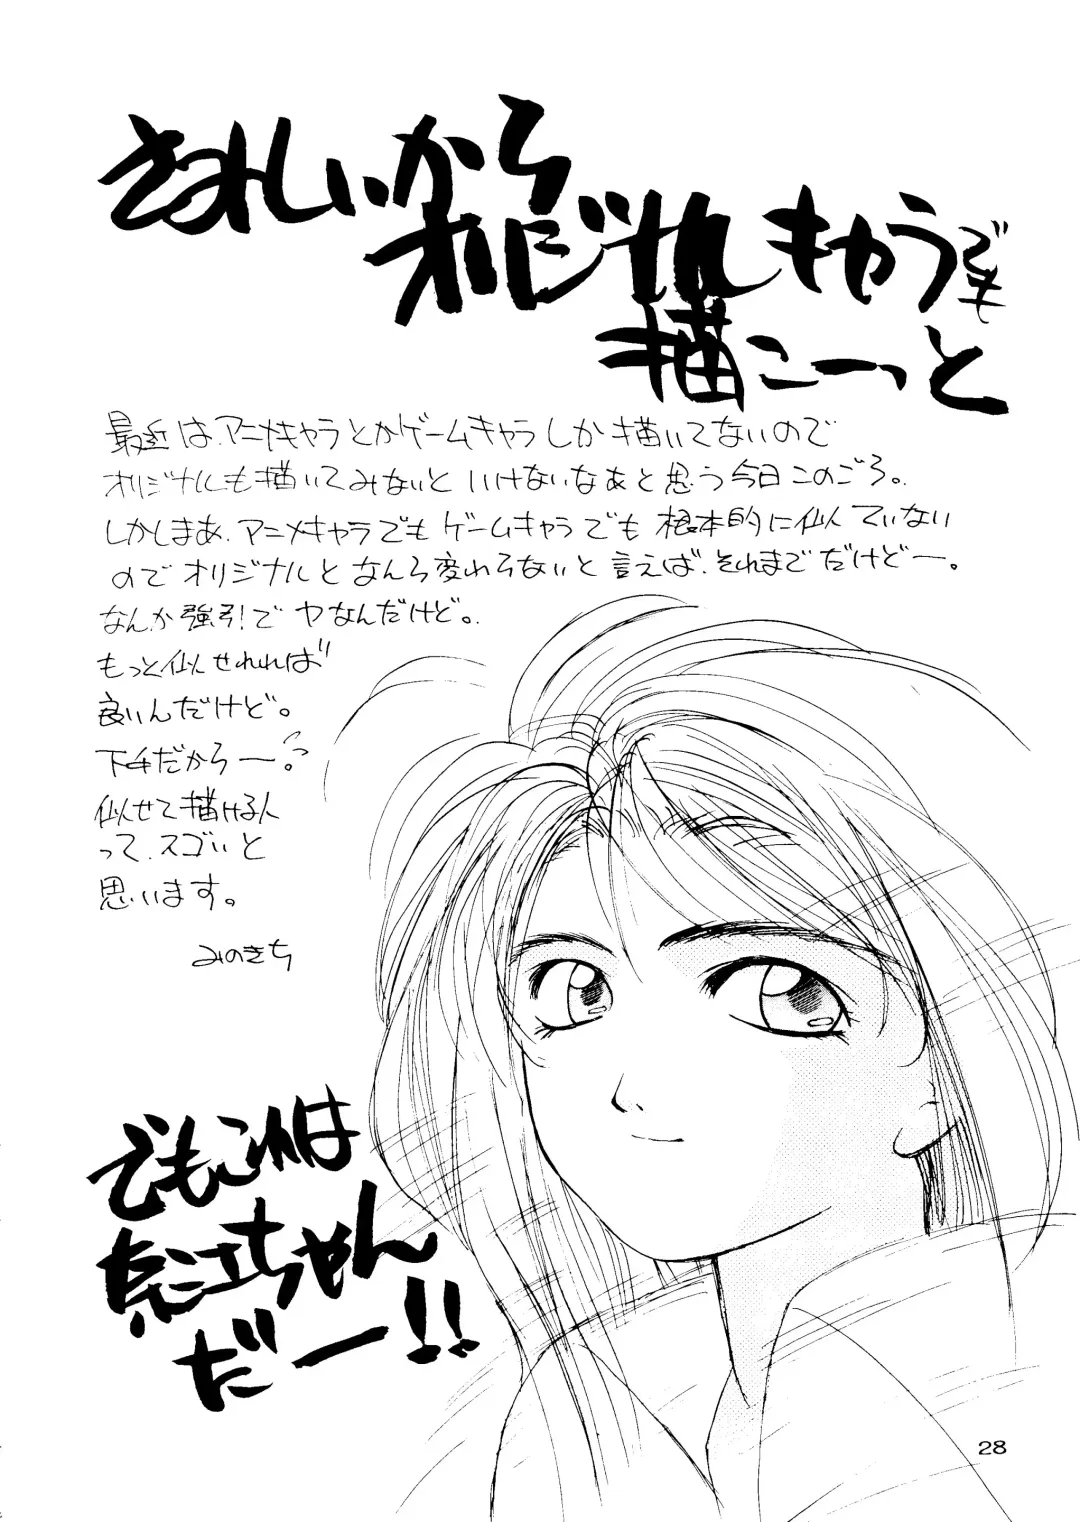 さみしいから
オリジナルキャラでも
描こーっと
最近は、アニメキャラとかゲームキャラしか描いてないので
オリジナルも描いてみないといけないなぁと思う今日このごろ。
しかしまあ、アニメキャラでもゲームキャラでも根本的に似ていない
のでオリジナルとなんら変わらないと言えば、それまでだけどー。
なんか強引でヤなんだけど。
もっと似せれれば
良いんだけど。
下手だからー。
似せて描ける人
って、スゴいと
思います。
みのきち
でもこれは
虎江ちゃん
だー!!
28